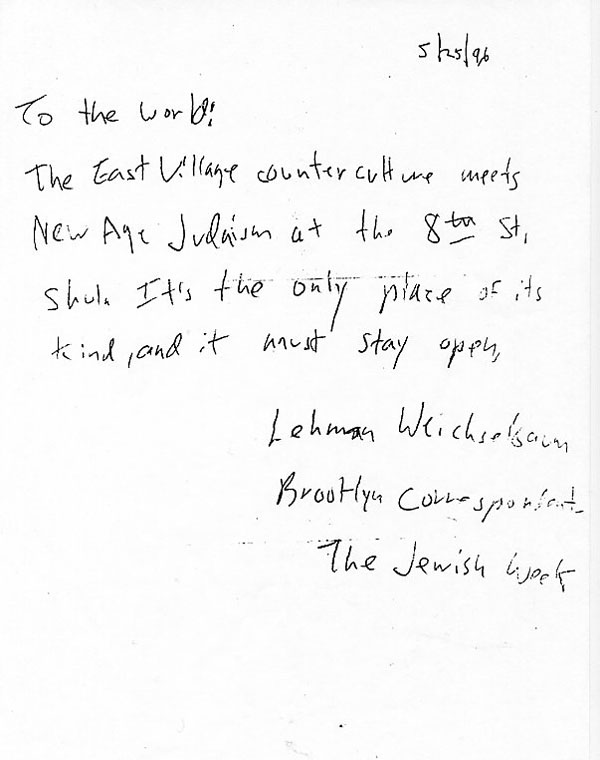 5/25/96
To the world:
The East Village counterculture meets
New Age Judaism at the 8th St.
Shul. It's the only place of its
kind, and it must stay open.
Lehman Weichselbaum
Brooklyn Correspondent
The Jewish Week